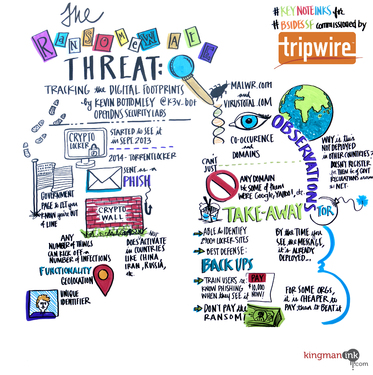 The
RANSOMWARE
THREAT:
TRACKING the DIGITAL FOOTPRINTS
-by KEVIN BOTTOMLEY @k3v_b0t
OPENDNS SECURITY LABS
#KEYNOTEINKS for
#BSIDESSF commissioned by
tripwire
CRYPTO
LOCKER
STARTED to SEE it
in SEPT. 2013
2014 - TORRENTLOCKER
SENT as a
PHISH
GOVERNMENT
CRYPTO
WALL
ANY
NUMBER of THINGS
CAN KICK off a
NUMBER of INFECTIONS
ACTIVATE
in COUNTRIES
LIKE CHINA,
IRAN, RUSSIA,
etc.
FUNCTIONALITY
GEOLOCATION
UNIQUE
IDENTIFIER
MALWR.com
and
VIRUSTOTAL.COM
CO-OCCURENCE
and
DOMAINS
OBSERVATIONS
WHY is this
NOT DEPLOYED
in OTHER COUNTRIES?
CAN'T
JUST
ANY DOMAIN
b/c SOME of THEM
WERE GOOGLE, YAHOO!, etc.
TAKE-AWAY
FOR
ABLE to IDENTIFY
LOCKER SITES
BEST DEFENSE:
BACKUPS
TRAIN USERS to
KNOW PHISHING
WHEN they SEE it
PAY
$10,000
NOW!
DON'T PAY the
RANSOM
BY the TIME you
SEE the MESSAGE,
it's ALREADY
DEPLOYED...
FOR SOME ORGS,
it is CHEAPER to
PAY than to BEAT it
kingmanink.com